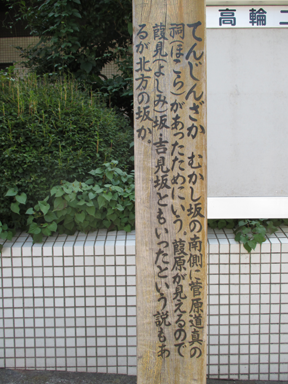 てんじんざか　むかし坂の南側に菅原道真の
祠(ほこら)があったためにいう。葭原が見えるので
葭見(よしみ)坂・吉見坂ともいったという説もあ
るが北方の坂か。
高輪